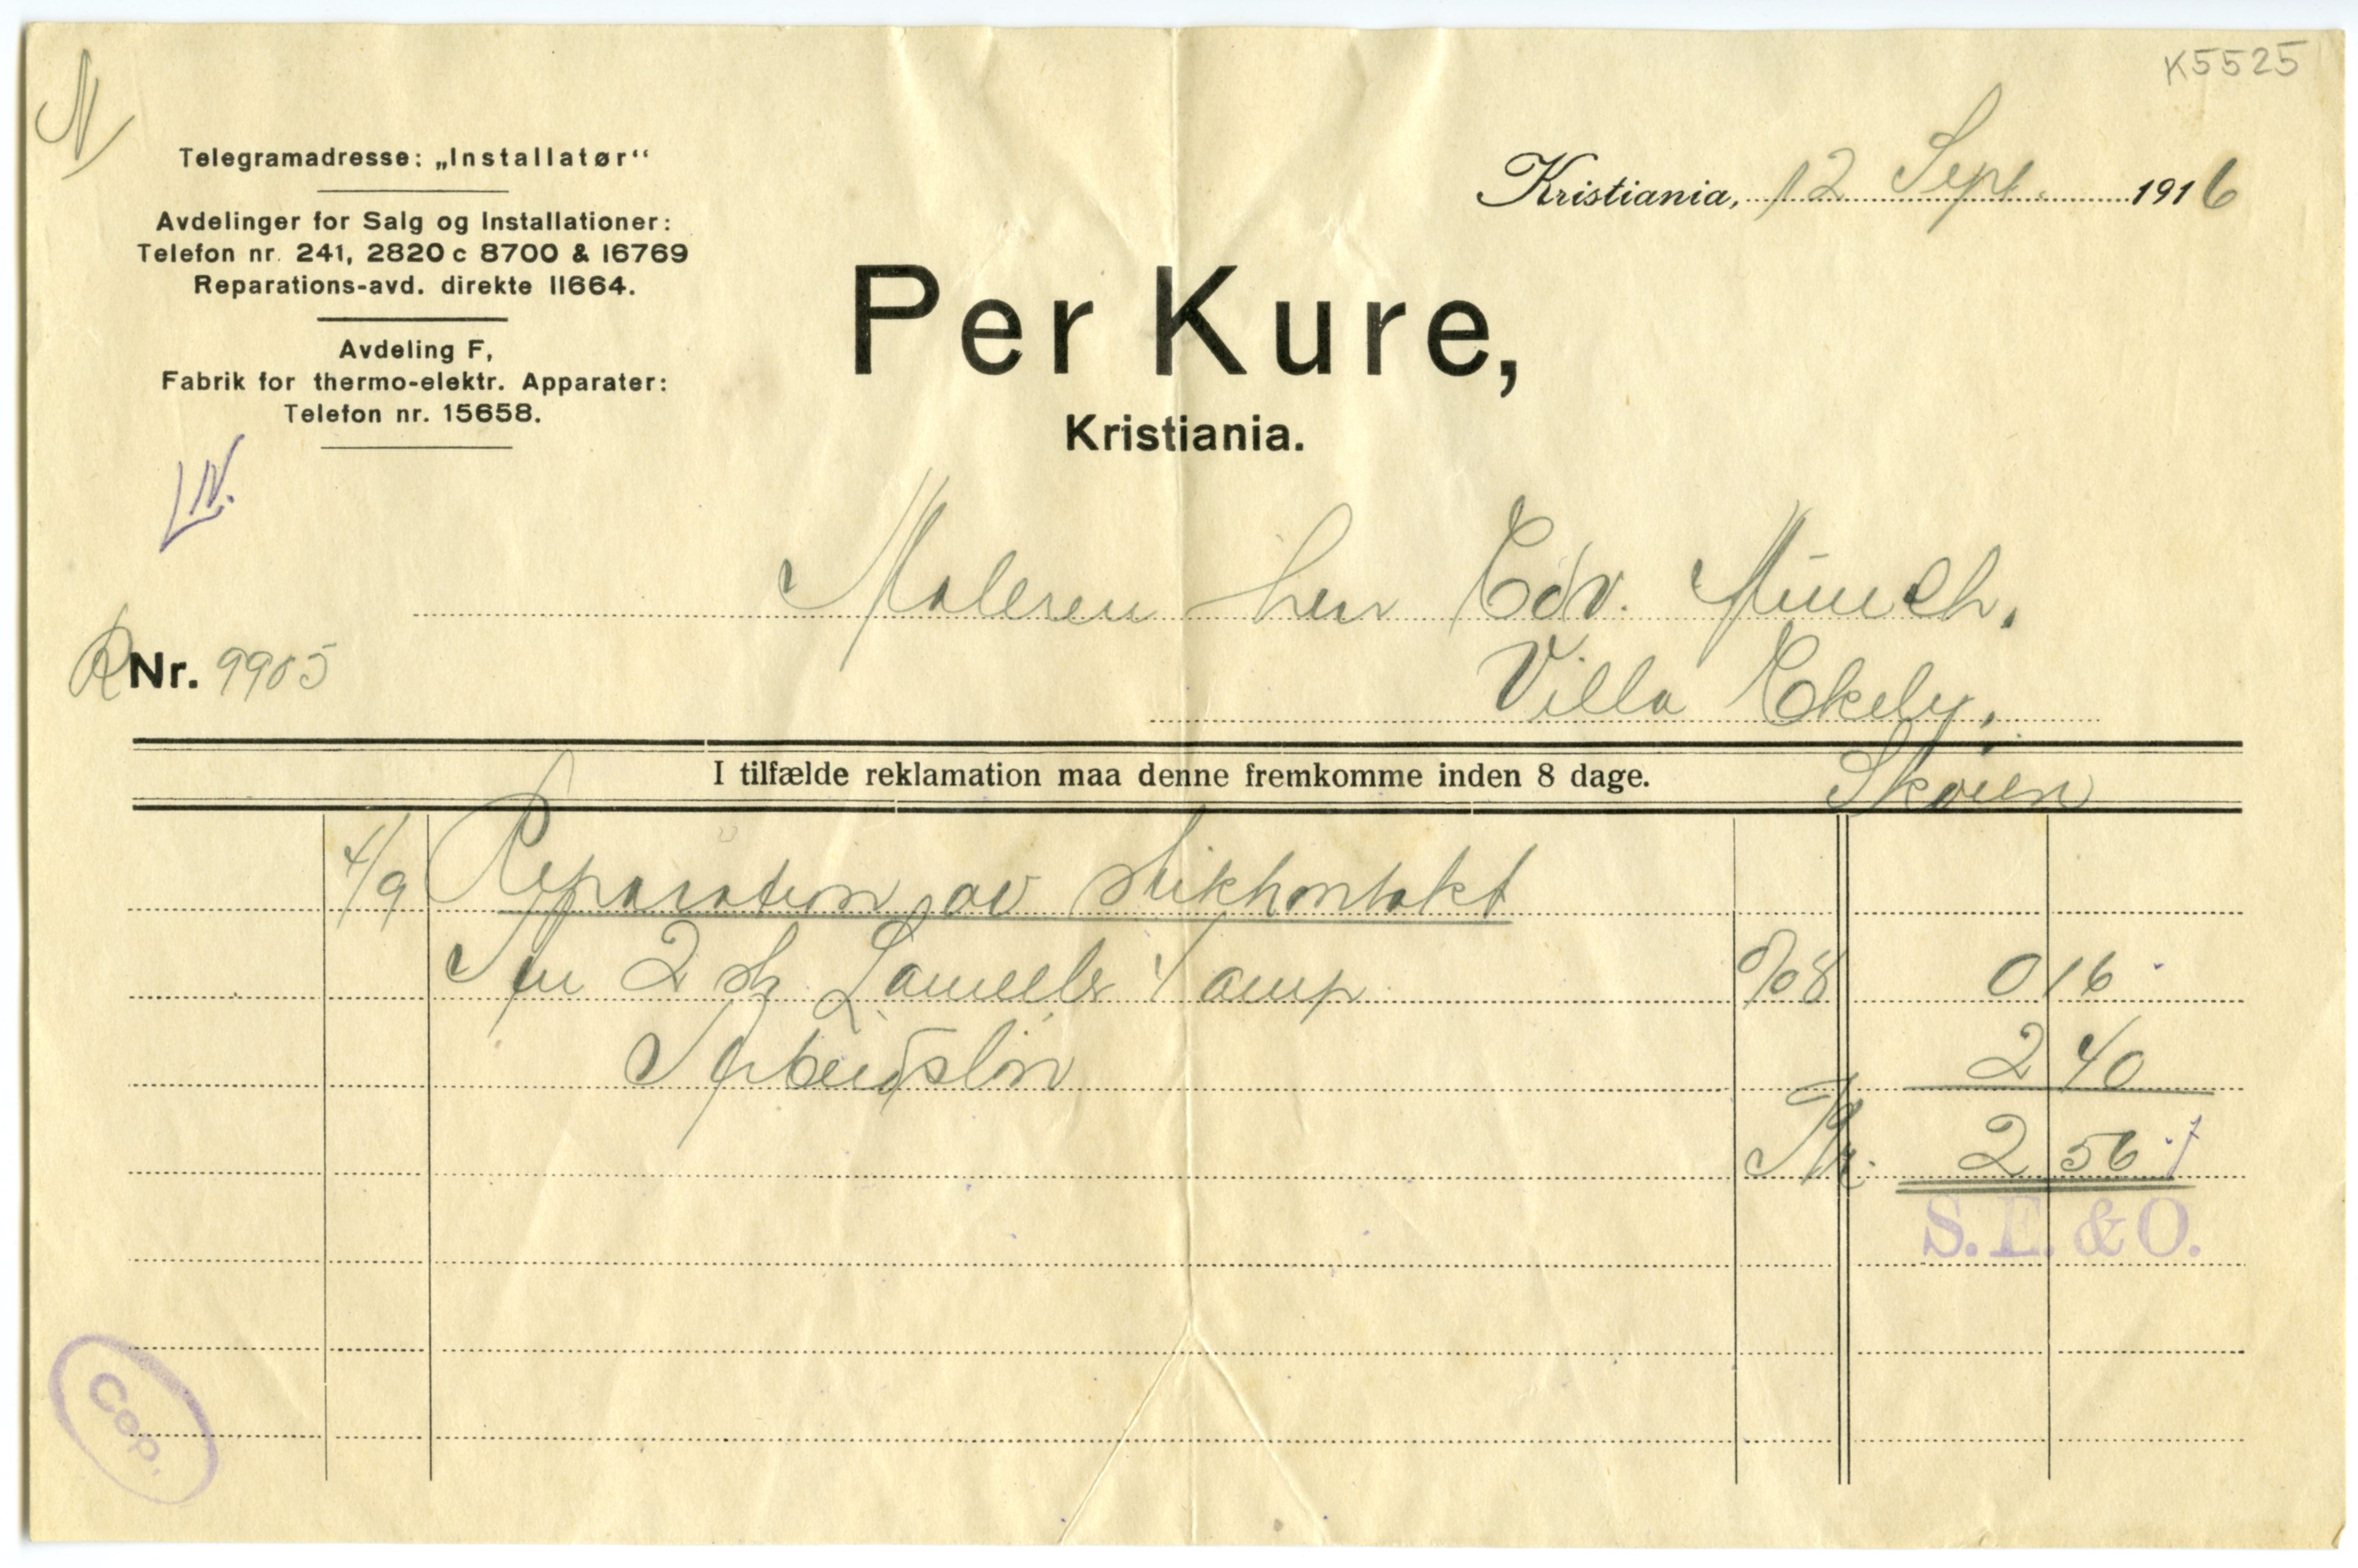 K5525
N
Telegramadresse: „Installatør“
Avdelinger for Salg og Installationer:
Telefon nr. 241, 2820 c 8700 & 16769
Reparations-avd. direkte 11664.
Avdeling F,
Fabrik for thermo-elektr. Apparater:
Telefon nr. 15658.
Kristiania, 12 Sept. 1916
Per Kure,
Kristiania.
Maleren herr Edv. Munch.
R Nr. 9905
Villa Ekely,
Skøien
I tilfælde reklamation maa denne fremkomme inden 8 dage.
4/9 Reparation av stikkontakt
2 st Lameller 4 amp %08 0 16
Arbeidsløn 2 40
Kr. 2 56
S. E. & O.
Cop.